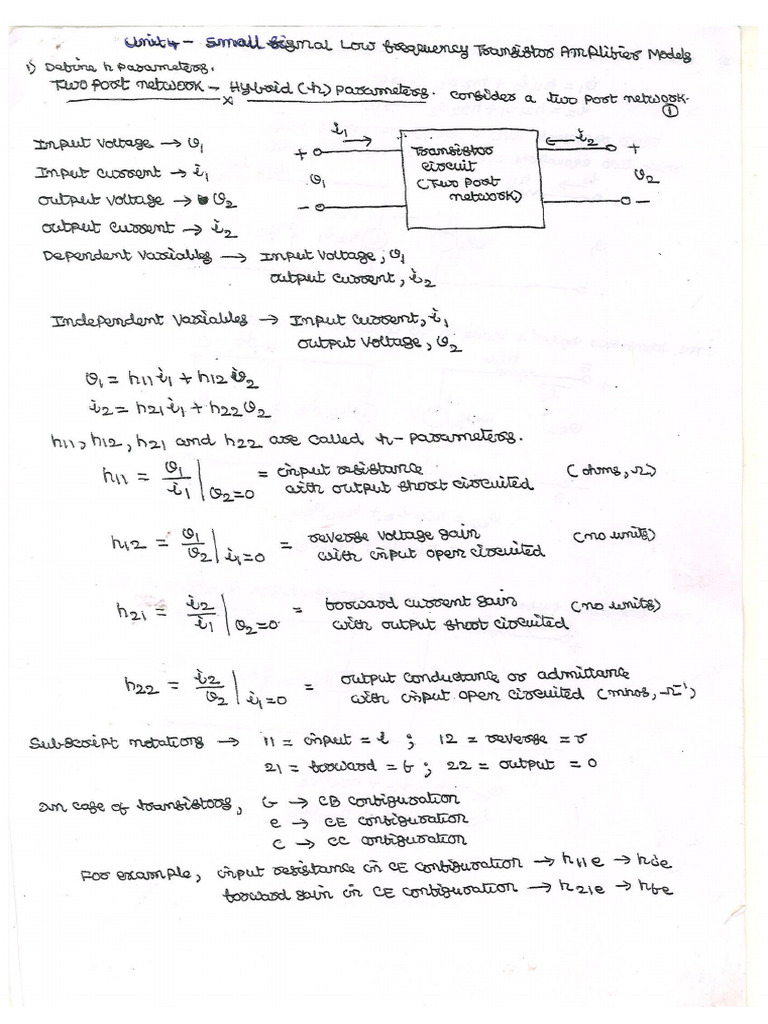 Unit 4 - Small Signal Low frequency Transistor Amplifier Models
1) Define h parameters.
Two Port network - Hybrid (h) parameters. consider a two port network.
①
Input voltage → v1
Input current → i1
output voltage → v2
output current → i2
i1 →
+
v1
-
Transistor
circuit
(Two Port
network)
← i2
+
v2
-
Dependent variables → Input voltage, v1
output current, i2
Independent variables → Input current, i1
output voltage, v2
v1 = h11 i1 + h12 v2
i2 = h21 i1 + h22 v2
h11, h12, h21 and h22 are called h-parameters.
h11 = v1/i1 | v2=0 = input resistance (ohms, Ω)
with output short circuited
h12 = v1/v2 | i1=0 = reverse voltage gain (no units)
with input open circuited
h21 = i2/i1 | v2=0 = forward current gain (no units)
with output short circuited
h22 = i2/v2 | i1=0 = output conductance or admittance
with input open circuited (mhos, Ω⁻¹)
Subscript notations → 11 = input = i ; 12 = reverse = r
21 = forward = f ; 22 = output = 0
In case of transistors, b → CB configuration
e → CE configuration
c → CC configuration
For example, input resistance in CE configuration → h11e → hie
forward gain in CE configuration → h21e → hfe